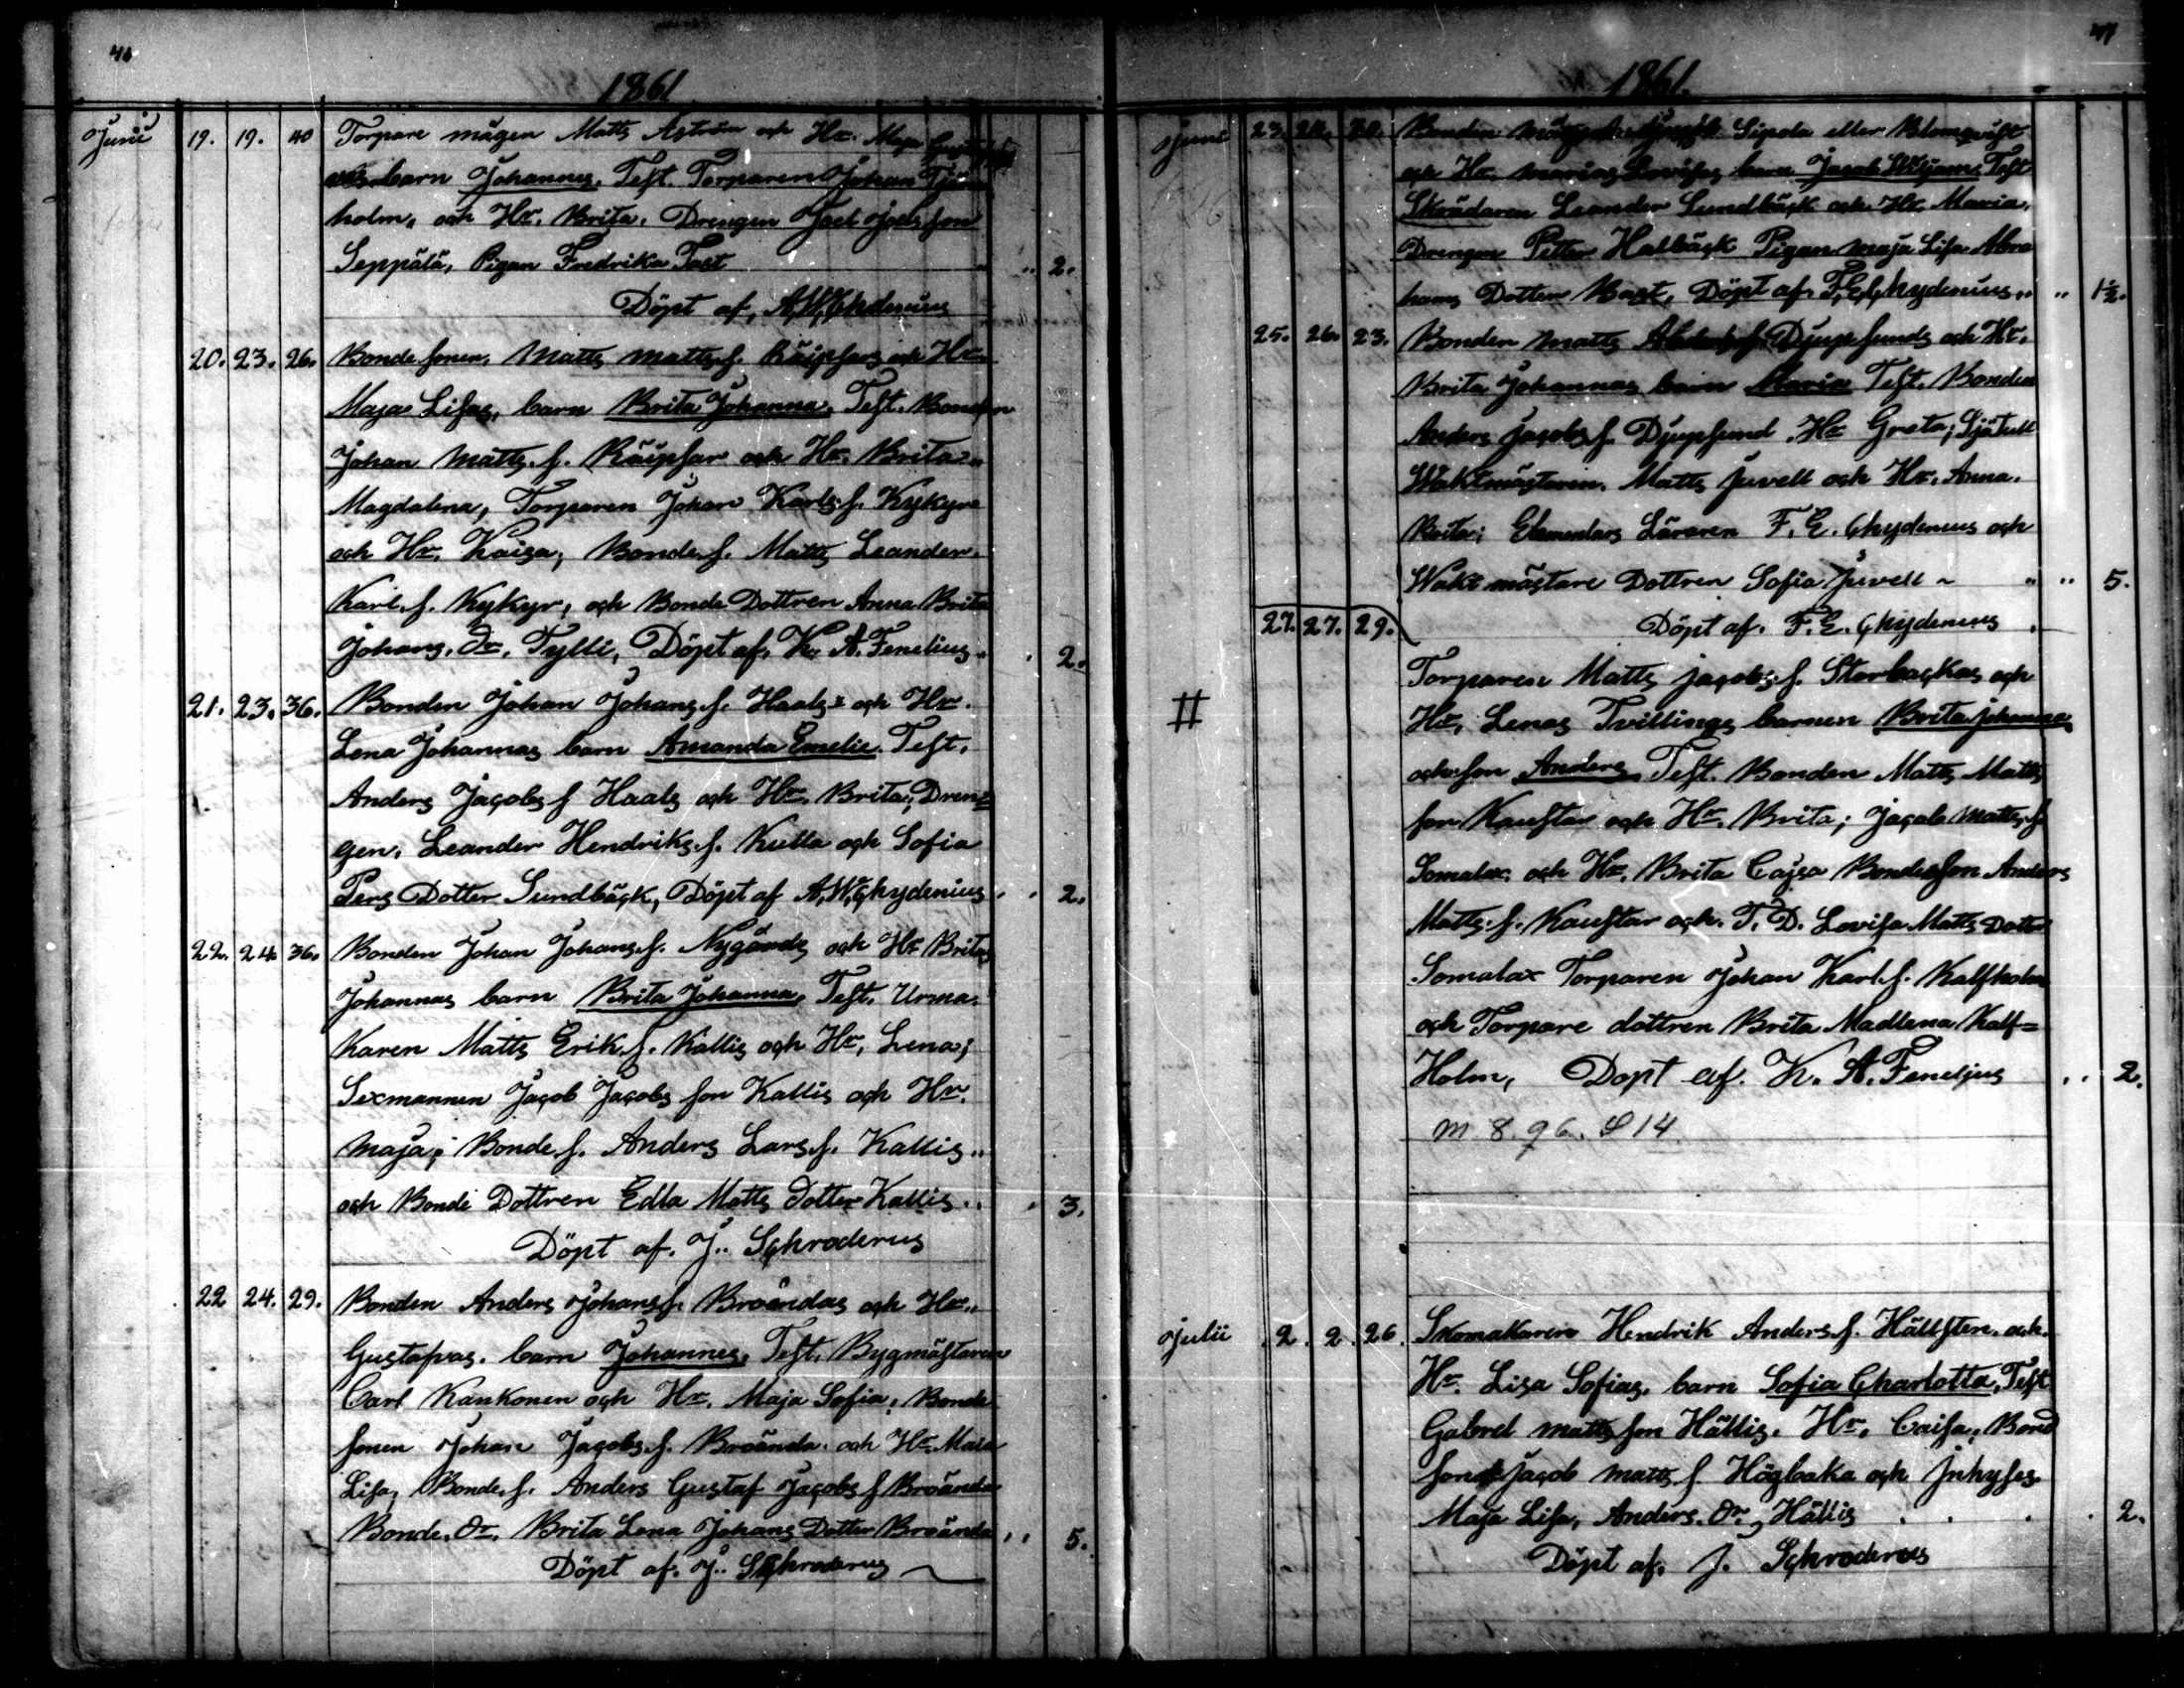 1861
Junii 19. 19. 40 Torpare mågen Matts Åström och Hr. Maja
barn Johannes. Test. Torparen Johan
holm, och Hr. Brita. Drengen Joel Joels son
Seppälä, Pigan Fredrika Tast 2.
Döpt af, A. W. Chydenius
20. 23. 26. Bonde sonen, Matts Matts s. Räipsars och Hr.
Maja Lisas, barn Brita Johanna. Test. Bonden
Johan Matts. s. Räipsar och Hr. Brita
Magdalena, Torparen Johan Karls s. Kykyr
och Hr. Kaisa, Bonde. s. Matts Leander
Karl. s. Kykyr, och Bonde Dottren Anna Brita
Johans. dr. Tylli, Döpt af, K. A. Fenelius 2.
21. 23. 36. Bonden Johan Johans. s. Haals och Hr.
Lena Johannas barn Amanda Emelie. Test.
Anders Jacobs s Haals och Hr. Brita, Dren=
gen, Leander Hendriks. s. Kulla och Sofia
Pers Dotter Sundbäck, Döpt af A. W. Chydenius 2.
22. 24. 36. Bonden Johan Johans. s. Nygårds och Hr Brita
Johannas barn Brita Johanna, Test. Urma=
karen Matts Erik. s. Kallis och Hr, Lena;
Sexmannen Jacob Jacobs son Kallis och Hr.
Maja; Bonde s. Anders Lars. s. Kallis
och Bonde Dottren Edla Matts dotter Kallis 3.
Döpt af. J. Schroderus
22 24. 29. Bonden Anders Johans s. Broändas och Hr.
Gustafvas. barn Johannes. Test. Bygmästaren
Carl Kankonen och Hr. Maja Sofia, Bonde
sonen Johan Jacobs. s. Broända och Hr. Maja
Lisa, Bonde. s. Anders Gustaf Jacobs s Broända
Bonde. dr. Brita Lena Johans Dotter Broända 5.
Döpt af. J. Schroderus
1861.
Junii 23. 24. 30. Bonden Sipola eller Blomqvist
och Hr. Marias Lovisas barn Jacob Wiljam. Test
Skrädaren Leander Sundbäck och Hr. Maria,
Drengen Petter Halbäck Pigan Maja Lisa Abra
hams Dotter Bast, Döpt af F. E. Chydenius 1½.
25. 26. 23. Bonden Matts Djupsunds och Hr.
Brita Johannas barn Maria Test. Bonden
Anders Jacobs s. Djupsund Hr Greta; Sjötull
Waktmästaren. Matts Juvell och Hr. Anna.
Brita; Elementars Läraren F. E. Chydenius och
Wakt mästare Dottren Sofia Juvell 5.
27. 27. 29. Döpt af. F. E. Chydenius
# Torparen Matts Jacobs. s. Storbackas och
Hr, Lenas Tvillings barnen Brita Johanna
och son Anders Test. Bonden Matts Matts
son Kaustar och Hr. Brita; Jacob Matts. s
Somalax. och Hr. Brita Cajsa Bondeson Anders
Matts. s. Kaustar och. T. D. Lovisa Matts Dotter
Somalax Torparen Johan Karl. s. Kalfholm
och Torpare dottren Brita Madlena Kalf=
Holm, Dopt af. K. A. Fenelius 2.
m 8. q 6. S 14
Julii 2. 2. 26. Skomakaren Hendrik Anders. s. Hällsten. och.
Hr. Lisa Sofias. barn Sofia Charlotta, Test
Gabrel Matts son Hällis. Hr. Caisa, Bond
son Jacob Matts. s. Högbaka och Inhyses
Maja Lisa, Anders. dr. Hällis 2.
Döpt af. J. Schroderus